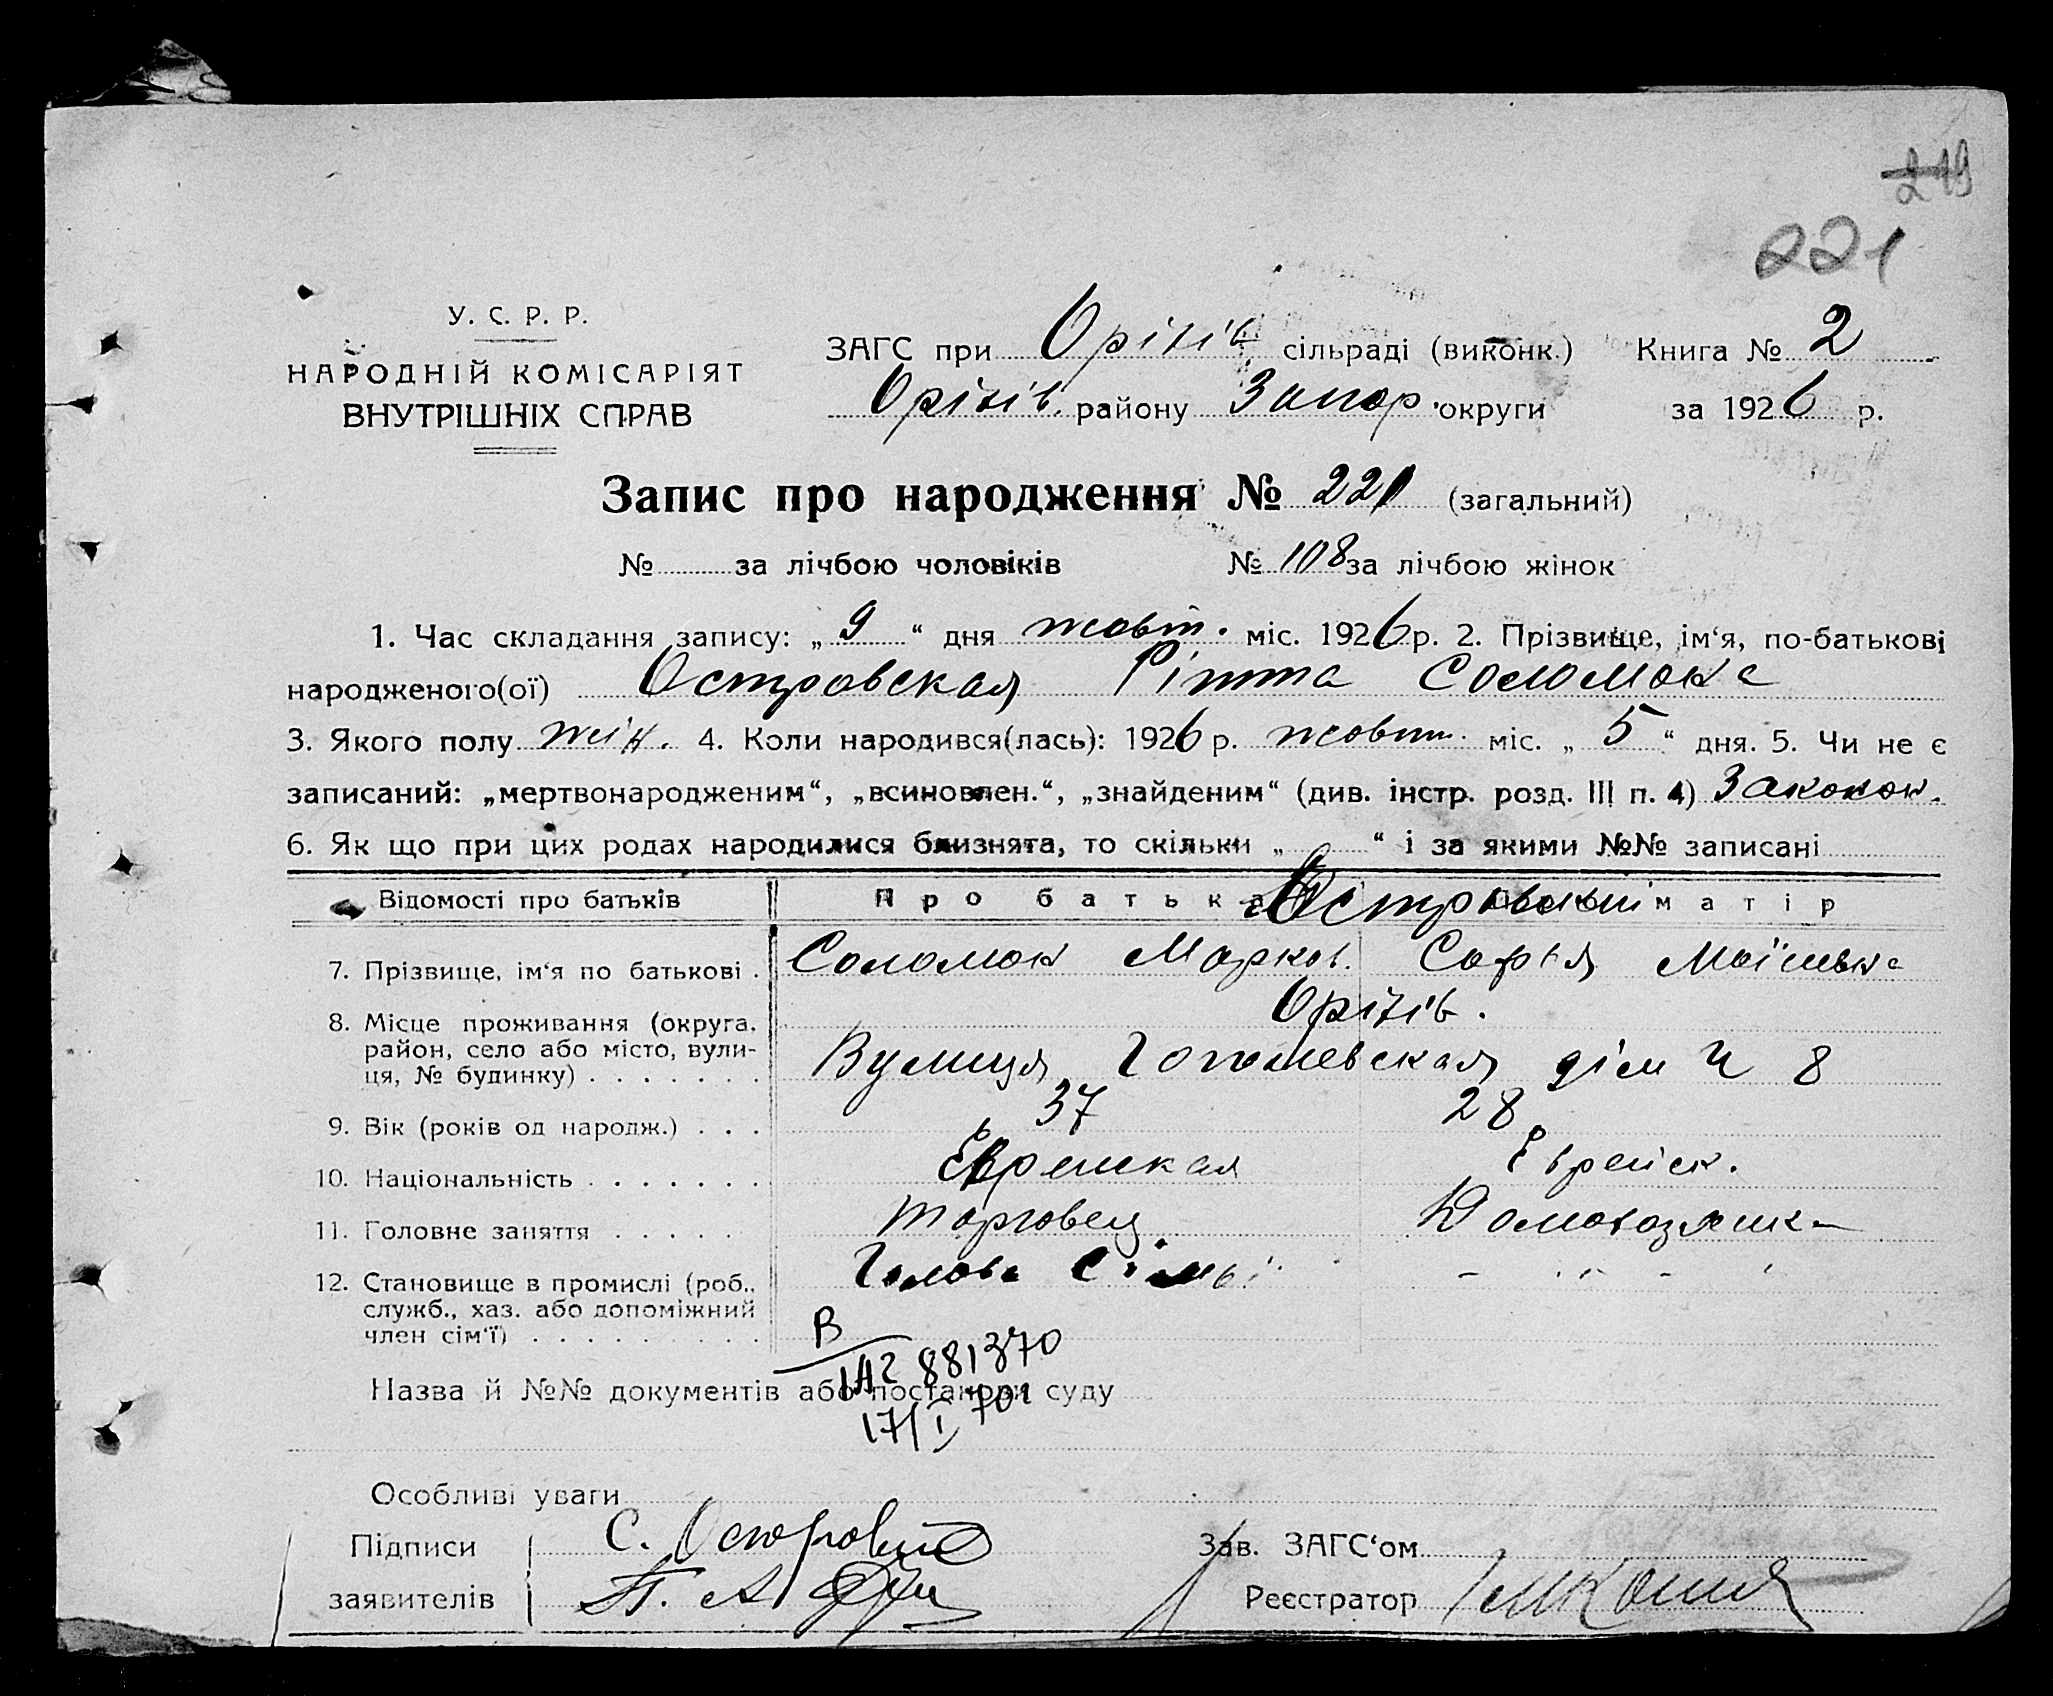 219
221
У. С. Р. Р.
НАРОДНІЙ КОМІСАРІЯТ
ВНУТРІШНІХ СПРАВ
ЗАГС при Оріхів сільраді (виконк.) Книга № 2
Оріхів. району Запор. округи за 1926 р.
Запис про народження № 221 (загальний)
№ за лічбою чоловіків № 108 за лічбою жінок
1. Час складання запису: „ 9 “ дня жовт. міс. 1926 р. 2. Прізвище, ім‘я, по-батькові
народженого(ої) Островская Рітта Соломон
3. Якого полу жін. 4. Коли народився(лась): 1926 р. жовт. міс. „ 5 “ дня. 5. Чи не є
записаний: „мертвонародженим“, „всиновлен.“, „знайденим“ (див. інстр. розд. III п. 4) Законон.
6. Як що при цих родах народилися близнята, то скільки „ “ і за якими №№ записані
Відомості про батьків Про батька Островський матір
7. Прізвище, ім‘я по батькові . Соломон Марков. Софья
8. Місце проживання (округа, район, село або місто, вули- ця, № будинку) . . . . . . . Оріхів.
Вулиця Гоголевская дім № 8
9. Вік (років од народж.) . . . 37 28
10. Національність . . . . . . . Еврейская Еврейск.
11. Головне заняття . . . . . Торговец Домохозяйка
12. Становище в промислі (роб., служб., хаз. або допоміжний член сім‘ї) . . . . . . . . . Голова Сімьї
В
1А2 881370
Назва й №№ документів або постанови суду
17/I 70г
Особливі уваги
Підписи С. Островский Зав. ЗАГС‘ом
заявителів П. А. Реєстратор